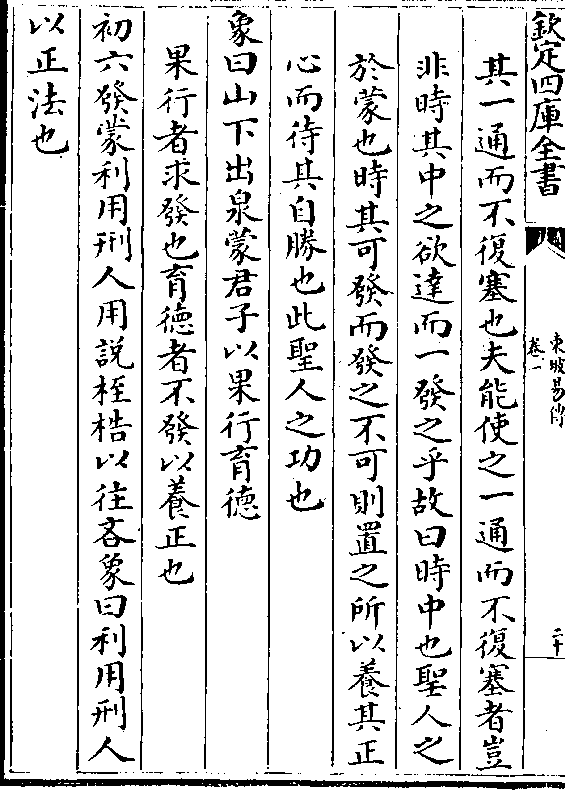 欽定四庫全書
東坡易傳
卷一
二十
其一通而不復塞也夫能使之一通而不復塞者豈
非時其中之欲達而一發之乎故曰時中也聖人之
於蒙也時其可發而發之不可則置之所以養其正
心而待其自勝也此聖人之功也
象曰山下出泉蒙君子以果行育德
果行者求發也育德者不發以養正也
初六發蒙利用刑人用說桎梏以往吝象曰利用刑人
以正法也